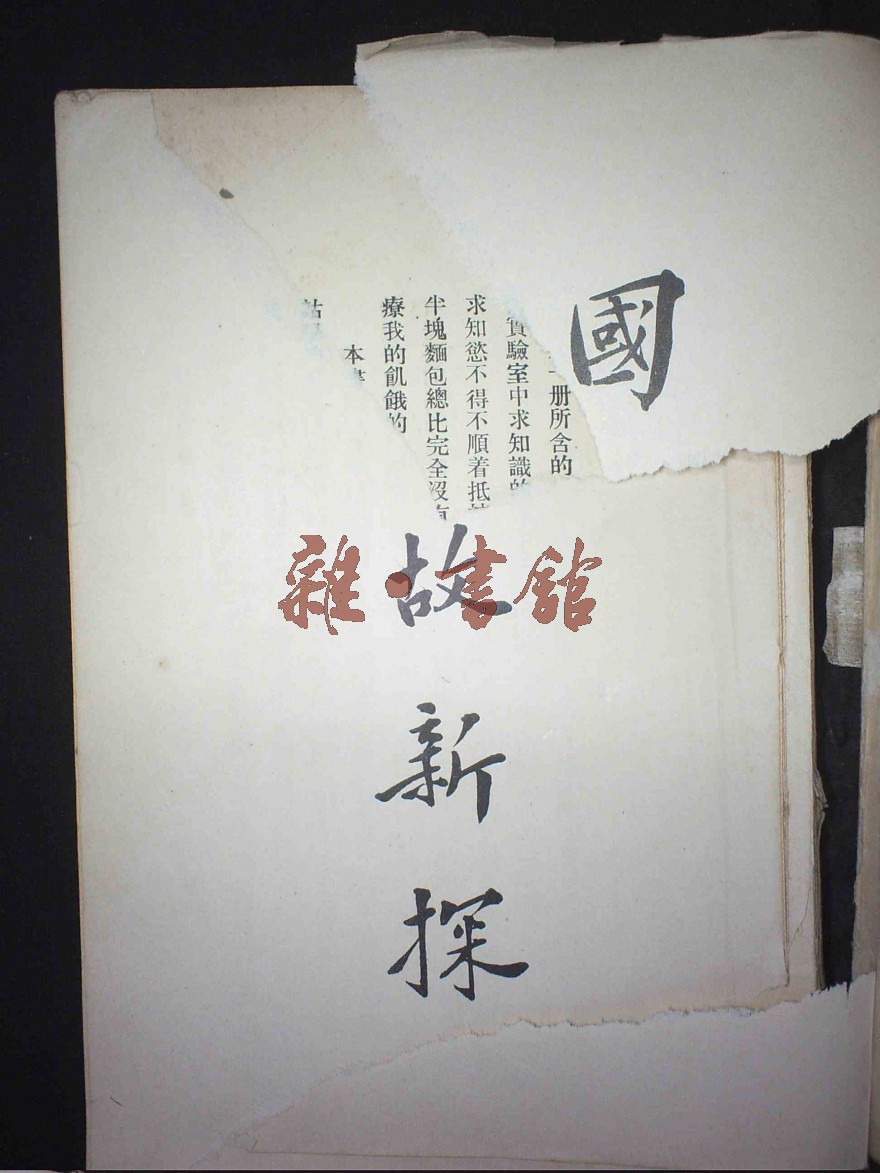 國
故
新
探
册所含的
實驗室中求知識的
求知慾不得不順着抵
半塊麵包總比完全沒有
療我的飢餓的
本
雜·書館